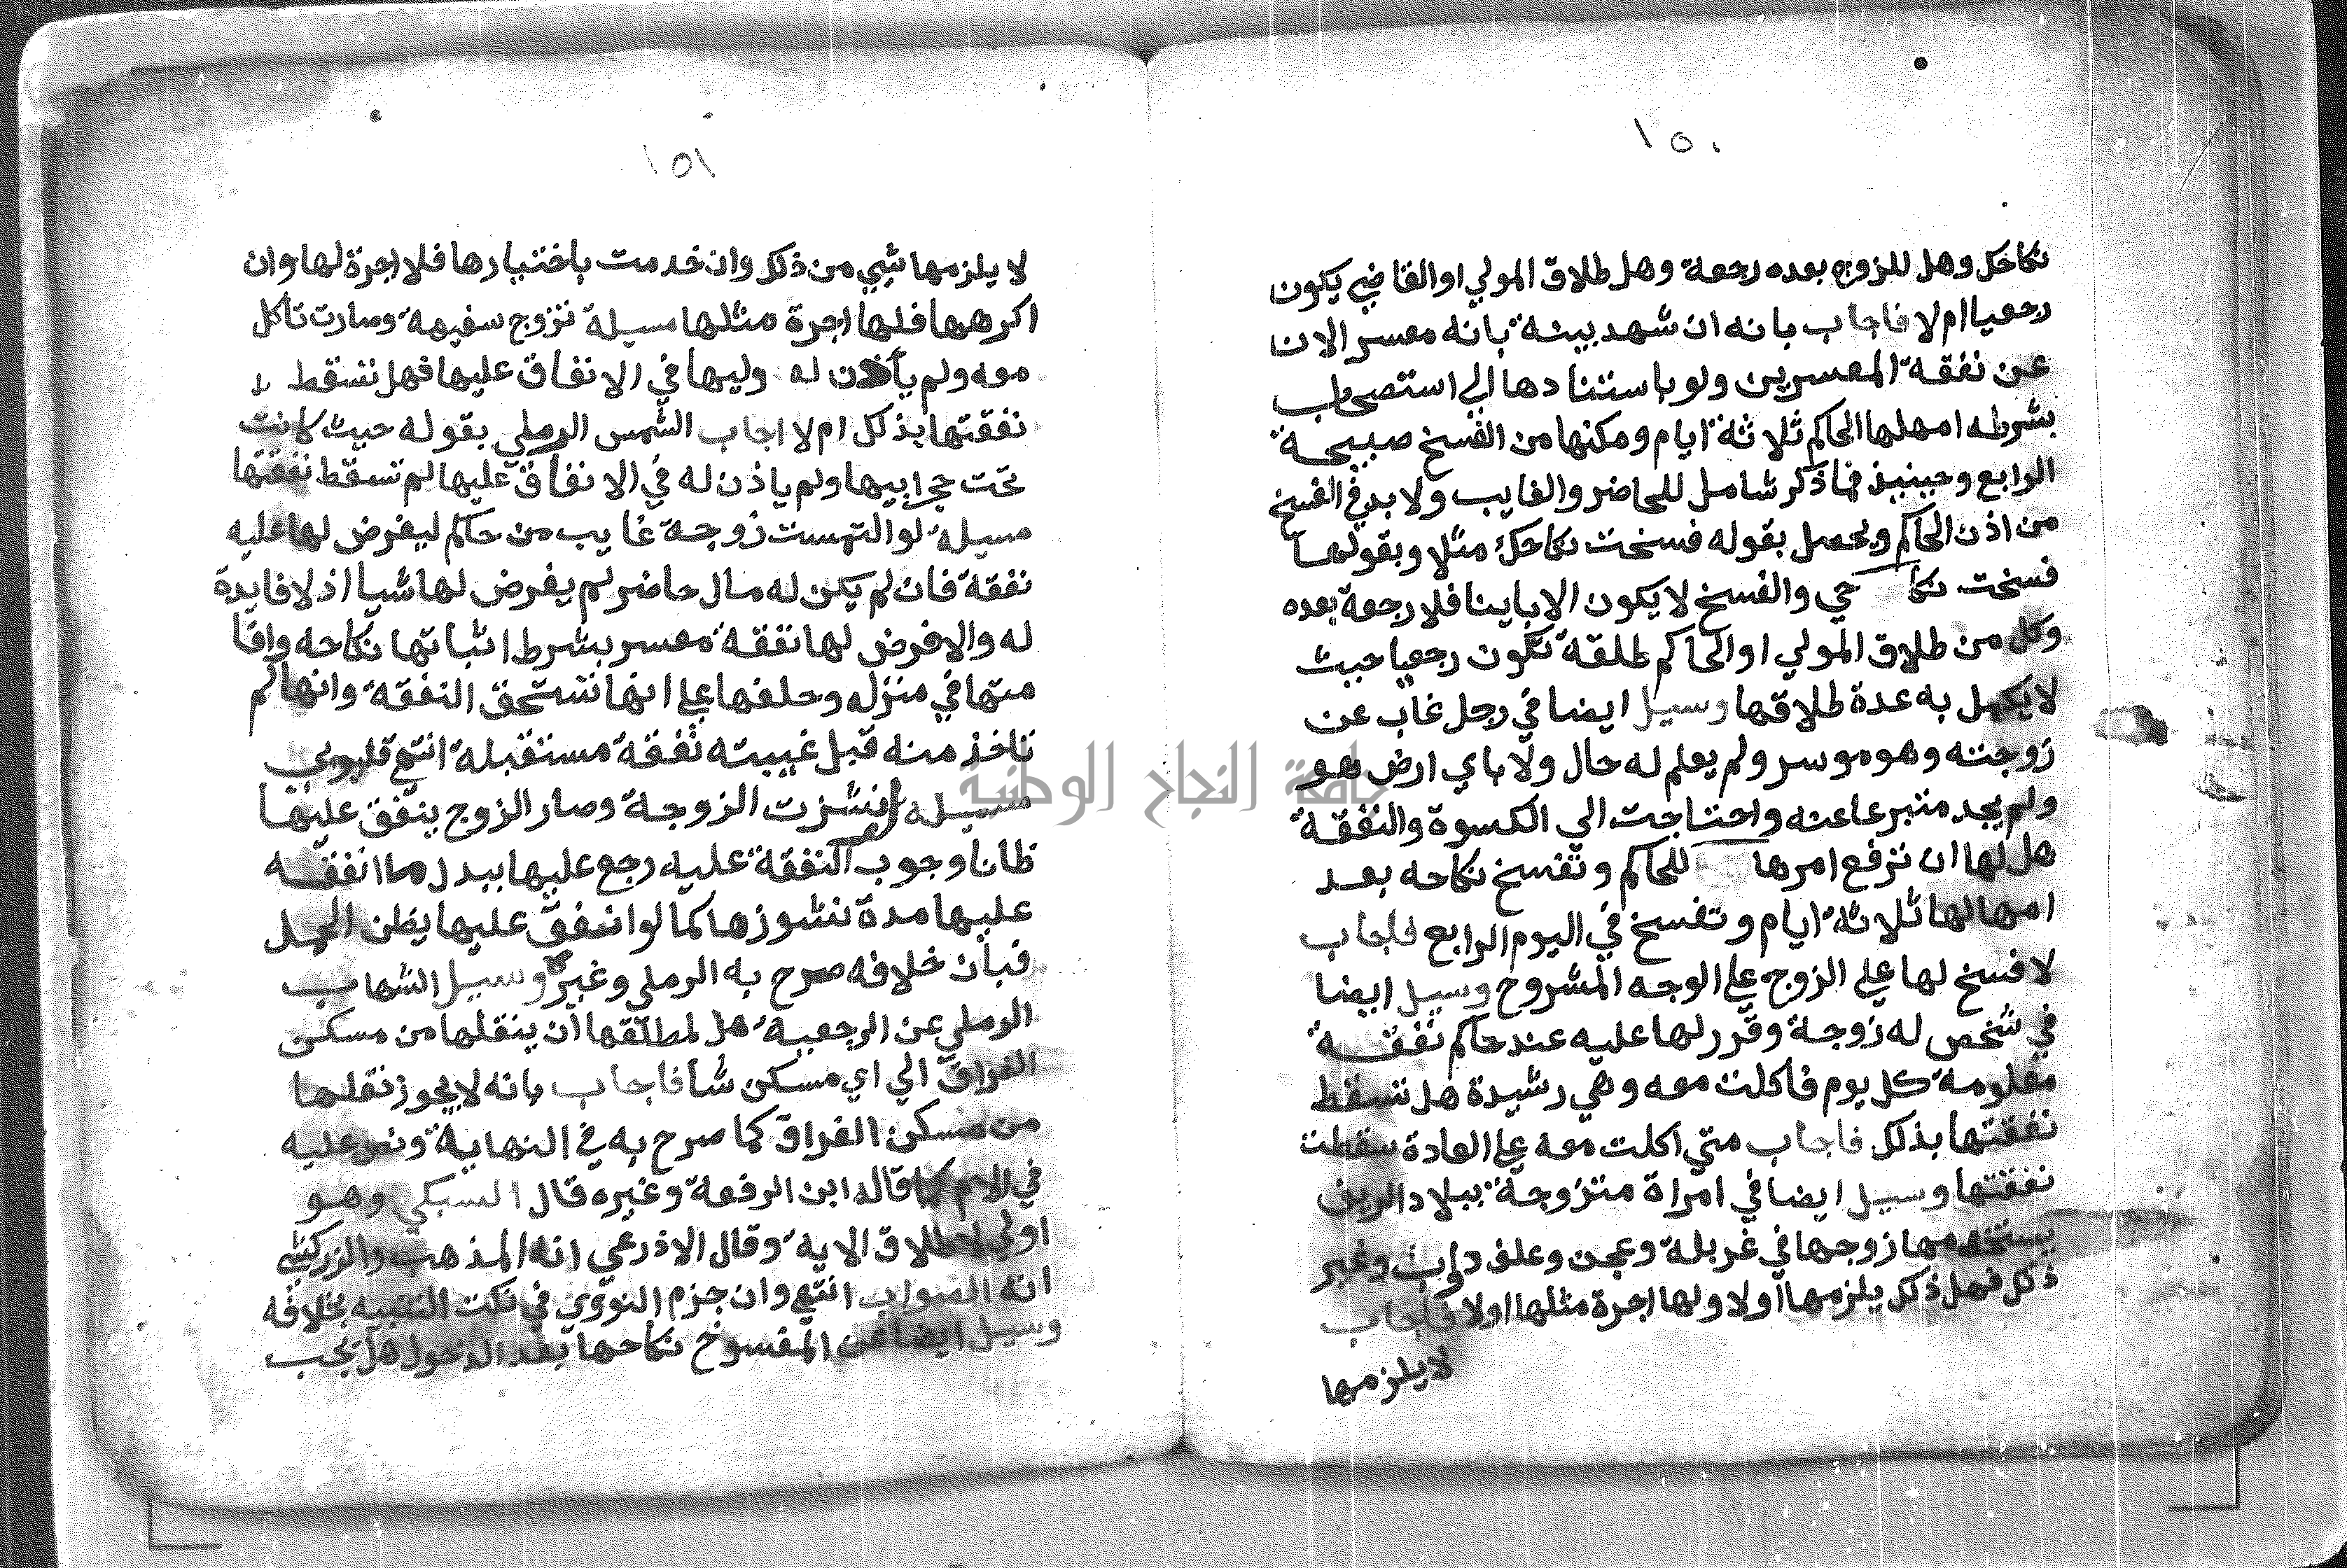 ١٥٠
نكاحك وهل للزوج بعده رجعة وهل طلاق المولي او القاضي يكون
رجعيا ام لا فاجاب بانه ان شهد بينة بانه معسر الان
عن نفقة المعسرين ولو باستنادها الي استصحاب
بشرطه امهلها الحاكم ثلاثة ايام ومكنها من الفسخ صبيحة
الرابع وحينيذ فما ذكر شامل للحاضر والغايب ولا بد في الفسخ
من اذن الحاكم ويحصل بقوله فسخت نكاحك مثلا وبقولها
فسخت نكا حي والفسخ لا يكون الا باينا فلا رجعة بعده
وكل من طلاق المولي او الحاكم طلقة تكون رجعيا حيث
لا يكمل به عدة طلاقها وسيل ايضا في رجل غاب عن
زوجته وهو موسر ولم يعلم له حال ولا باي ارض هو
ولم يجد متبرعا عنه واحتاجت الي الكسوة والنفقة
هل لها ان ترفع امرها للحاكم وتفسخ نكاحه بعد
امهالها ثلاثة ايام وتفسخ في اليوم الرابع فاجاب
لا فسخ لها علي الزوج علي الوجه المشروح وسيل ايضا
في شخص له زوجة وقرر لها عليه عند حاكم نفقة
معلومة كل يوم فاكلت معه وهي رشيدة هل تسقط
نفقتها بذلك فاجاب متي اكلت معه علي العادة سقطت
نفقتها وسيل ايضا في امراة متزوجة ببلاد الريف
يستخدمها زوجها في غربلة وعجن وعلف دواب وغير
ذلك فهل ذلك يلزمها اولا ولها اجرة مثلها اولا فاجاب
لا يلزمها
١٥١
لا يلزمها شي من ذلك وان خدمت باختيارها فلا اجرة لها وان
اكرهها فلها اجرة مثلها مسيلة تزوج سفيهة وصارت تاكل
معه ولم يأذن له وليها في الانفاق عليها فهل تسقط
نفقتها بذلك ام لا اجاب الشمس الرملي بقوله حيث كانت
تحت حجر ابيها ولم ياذن له في الانفاق عليها لم تسقط نفقتها
مسيلة لو التمست زوجة غايب من حاكم ليفرض لها عليه
نفقة فان لم يكن له مال حاضر لم يفرض لها شيا اذ لا فايدة
له والا فرض لها نفقة معسر بشرط اثباتها نكاحه واقا
متها في منزله وحلفها علي انها تستحق النفقة وانها لم
تاخذ منه قبل غيبته نفقة مستقبلة انتهي قليوبي
مسيلة نشزت الزوجة وصار الزوج ينفق عليها
ظانا وجوب النفقة عليه رجع عليها ببدل ما انفقه
عليها مدة نشوزها كما لو انفق عليها يظن الحمل
فبان خلافه صرح به الرملي وغيره وسيل الشهاب
الرملي عن الرجعية هل لمطلقها ان ينقلها من مسكن
الفراق الي اي مسكن شا فاجاب بانه لا يجوز نقلها
من مسكن الفراق كما صرح به في النهاية ونص عليه
في الام كما قاله ابن الرفعة وغيره قال السبكي وهو
اولي لاطلاق الاية وقال الاذرعي انه المذهب والزركشي
انه الصواب انتهي وان جزم النووي في نكت التنبيه بخلافه
وسيل ايضا عن المفسوخ نكاحها بعد الدخول هل تجب
جامعة النجاح الوطنية